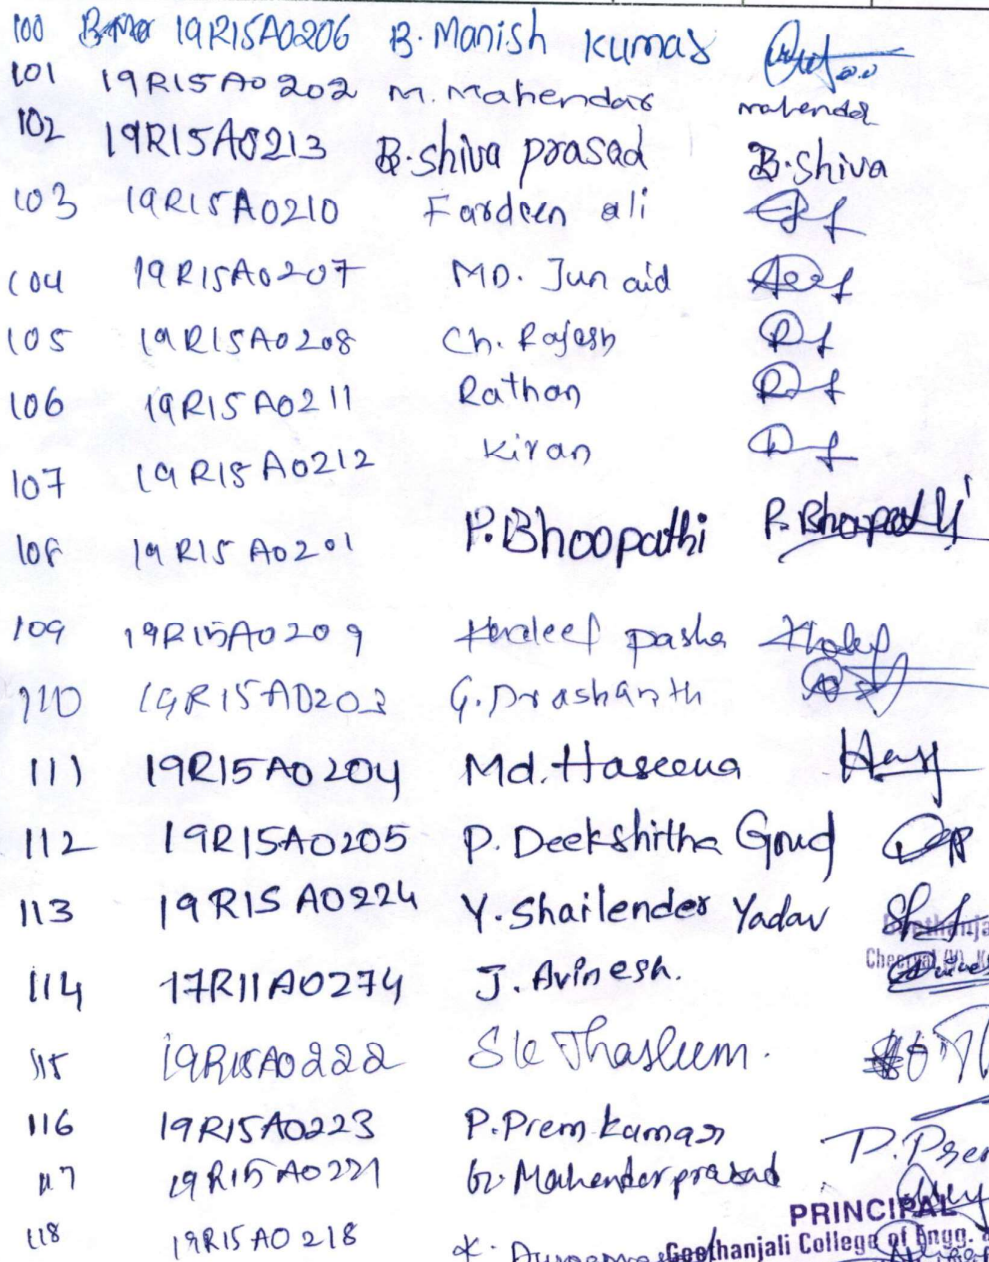 100 19R15A0206 B. Manish Kumar
101 19R15A0202 M. Mahendar mahendar
102 19R15A0213 B. Shiva prasad B. Shiva
103 19R15A0210 Fardeen ali
104 19R15A0207 MD. Junaid
105 19R15A0208 Ch. Rajesh
106 19R15A0211 Rathan
107 19R15A0212 Kiran
108 19R15A0201 P. Bhoopathi P. Bhoopathi
109 19R15A0209 Khaleef pasha Khaleef
110 19R15A0203 G. Prashanth
111 19R15A0204 Md. Haseena
112 19R15A0205 P. Deekshitha Goud
113 19R15A0224 Y. Shailender Yadav
114 17R11A0274 J. Avinesh.
115 19R15A0222 Sk Thasleem.
116 19R15A0223 P. Prem kumar P. Prem
117 19R15A0221 G. Mahender prasad
PRINCIPAL
118 19R15A0218 K.
Geethanjali College of Engg.